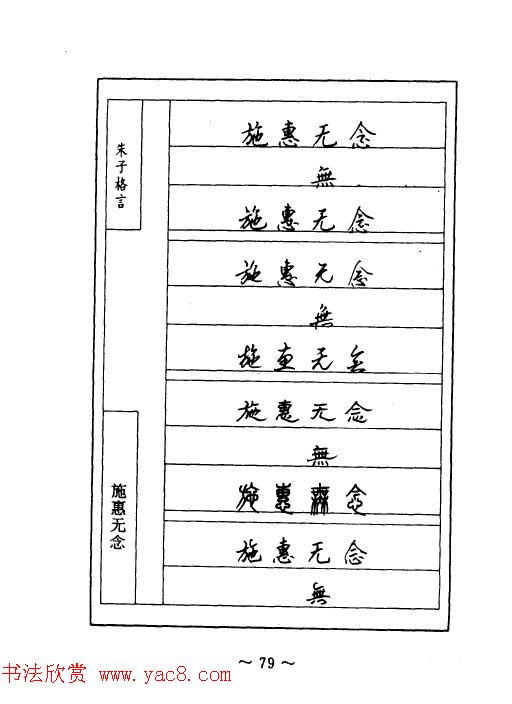 朱子格言
施惠无念
施惠无念
無
施惠无念
施惠无念
無
施惠无念
施惠无念
無
施惠無念
施惠无念
無
~ 79 ~
书法欣赏 www.yac8.com